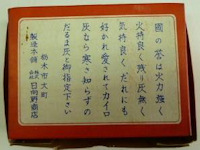 國の誉は火力強く
火持良く残り灰無く
気持良くだれにも
好かれ愛されてカイロ
灰なら寒さ知らずの
だるま灰と御指定下さい
栃木市大町
製造本舗 日向野商店